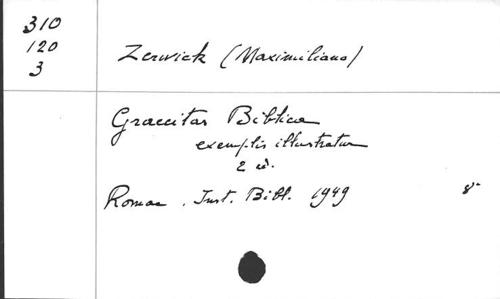 310
120
3
Zerwick (Maximiliano)
Graecitas Biblica
exemplis illustratur
2 ed.
Romae . Inst. Bibl. 1949 8°